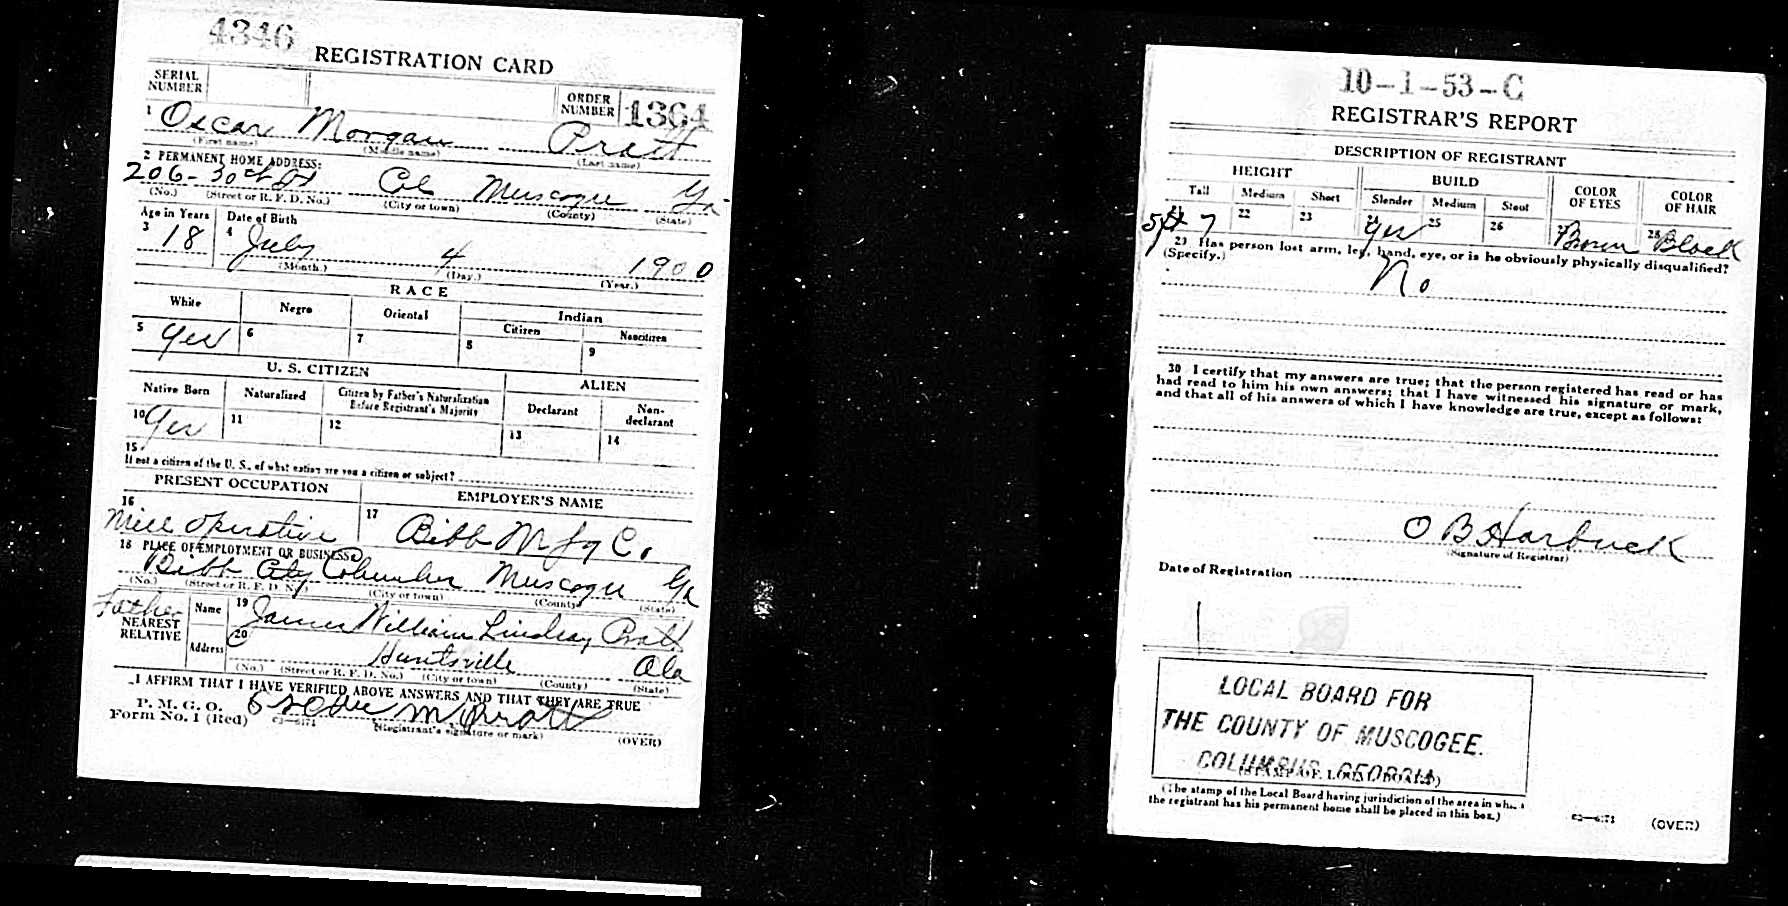 4346
REGISTRATION CARD
SERIAL NUMBER
ORDER NUMBER 1364
1 Oscar Morgan Pratt
(First name) (Middle name) (Last name)
2 PERMANENT HOME ADDRESS:
206-30th St Col Muscogee Ga
(No.) (Street or R. F. D. No.) (City or town) (County) (State)
Age in Years Date of Birth
3 18 4 July 4 1900
(Month.) (Day.) (Year.)
RACE
White Negro Oriental Indian
Citizen Noncitizen
5 Yes 6 7 8 9
U. S. CITIZEN ALIEN
Native Born Naturalized Citizen by Father's Naturalization Before Registrant's Majority Declarant Non-declarant
10 Yes 11 12 13 14
15
If not a citizen of the U. S., of what nation are you a citizen or subject?
PRESENT OCCUPATION EMPLOYER'S NAME
16 Mill operative 17 Bibb Mfg Co.
18 PLACE OF EMPLOYMENT OR BUSINESS:
Bibb City Columbus Muscogee Ga
(No.) (Street or R. F. D. No.) (City or town) (County) (State)
Father
NEAREST RELATIVE
Name 19 James William Lindsay Pratt
Address 20 Huntsville Ala
(No.) (Street or R. F. D. No.) (City or town) (County) (State)
I AFFIRM THAT I HAVE VERIFIED ABOVE ANSWERS AND THAT THEY ARE TRUE
P. M. G. O.
Form No. 1 (Red) 63-6171 M Pratt
(Registrant's signature or mark) (OVER)
10-1-53-C
REGISTRAR'S REPORT
DESCRIPTION OF REGISTRANT
HEIGHT BUILD COLOR OF EYES COLOR OF HAIR
Tall Medium Short Slender Medium Stout
21 5ft 7 22 23 24 Yes 25 26 27 Brown 28 Black
29 Has person lost arm, leg, hand, eye, or is he obviously physically disqualified?
(Specify.)
No
30 I certify that my answers are true; that the person registered has read or has
had read to him his own answers; that I have witnessed his signature or mark,
and that all of his answers of which I have knowledge are true, except as follows:
O B Harbuck
(Signature of Registrar)
Date of Registration
LOCAL BOARD FOR
THE COUNTY OF MUSCOGEE.
COLUMBUS, GEORGIA
(STAMP OF LOCAL BOARD)
(The stamp of the Local Board having jurisdiction of the area in which
the registrant has his permanent home shall be placed in this box.)
63-6171 (OVER)